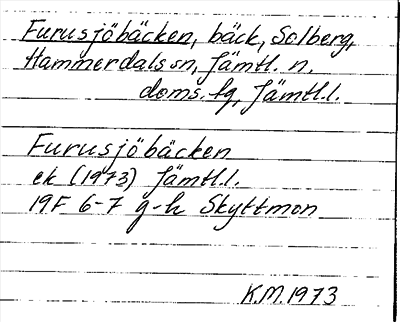 Furusjöbäcken, bäck, Solberg,
Hammerdals sn, Jämtl. n.
doms. fg, Jämtl.l.
Furusjöbäcken
ek (1973) Jämtl.l.
19F 6-7 g-h Skyttmon
K.M. 1973